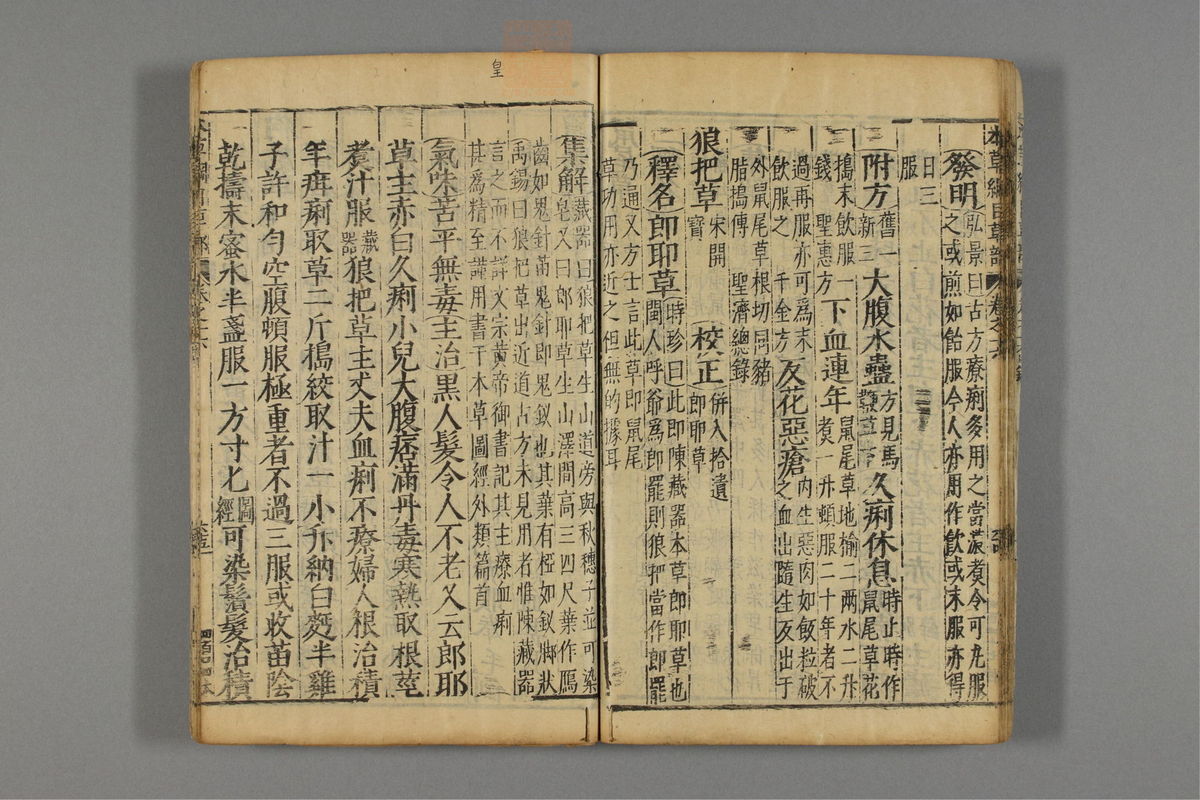 本草綱目草部
發明弘景曰古方療痢多用之當濃煮令可丸服
之或煎如飴服今人亦用作飲或末服亦得
日三
服
附方舊一新三大腹水蠱方見馬鞭草下久痢休息時止時作鼠尾草花
搗末飲服一錢聖惠方下血連年鼠尾草地榆二兩水二升煮一升頓服二十年者不
過再服亦可為末飲服之千金方反花惡瘡內生惡肉如飯粒破之血出隨生反出于
外鼠尾草根切同豬脂搗傅聖濟總錄
狼把草宋開寶校正併入拾遺郎耶草
釋名郎耶草時珍曰此即陳藏器本草郎耶草也
閩人呼爺為郎罷則狼把當作郎罷
乃通又方士言此草即鼠尾
草功用亦近之但無的據耳
皇
集解藏器曰狼把草生山道旁與秋穗子並可染
皂又曰郎耶草生山澤間高三四尺葉作鴈
齒如鬼針苗鬼針即鬼釵也其葉有椏如釵腳狀
禹錫曰狼把草出近道古方未見用者惟陳藏器
言之而不詳文宗黃帝御書記其主療血痢
甚為精至謹用書于本草圖經外類篇首
氣味苦平無毒主治黑人髮令人不老又云郎耶
草主赤白久痢小兒大腹痞滿丹毒寒熱取根莖
煮汁服藏器狼把草主丈夫血痢不療婦人根治積
年疳痢取草二斤搗絞取汁一小升納白麪半雞
子許和勻空腹頓服極重者不過三服或收苗陰
乾擣末蜜水半盞服一方寸匕圖經可染鬚髮治積